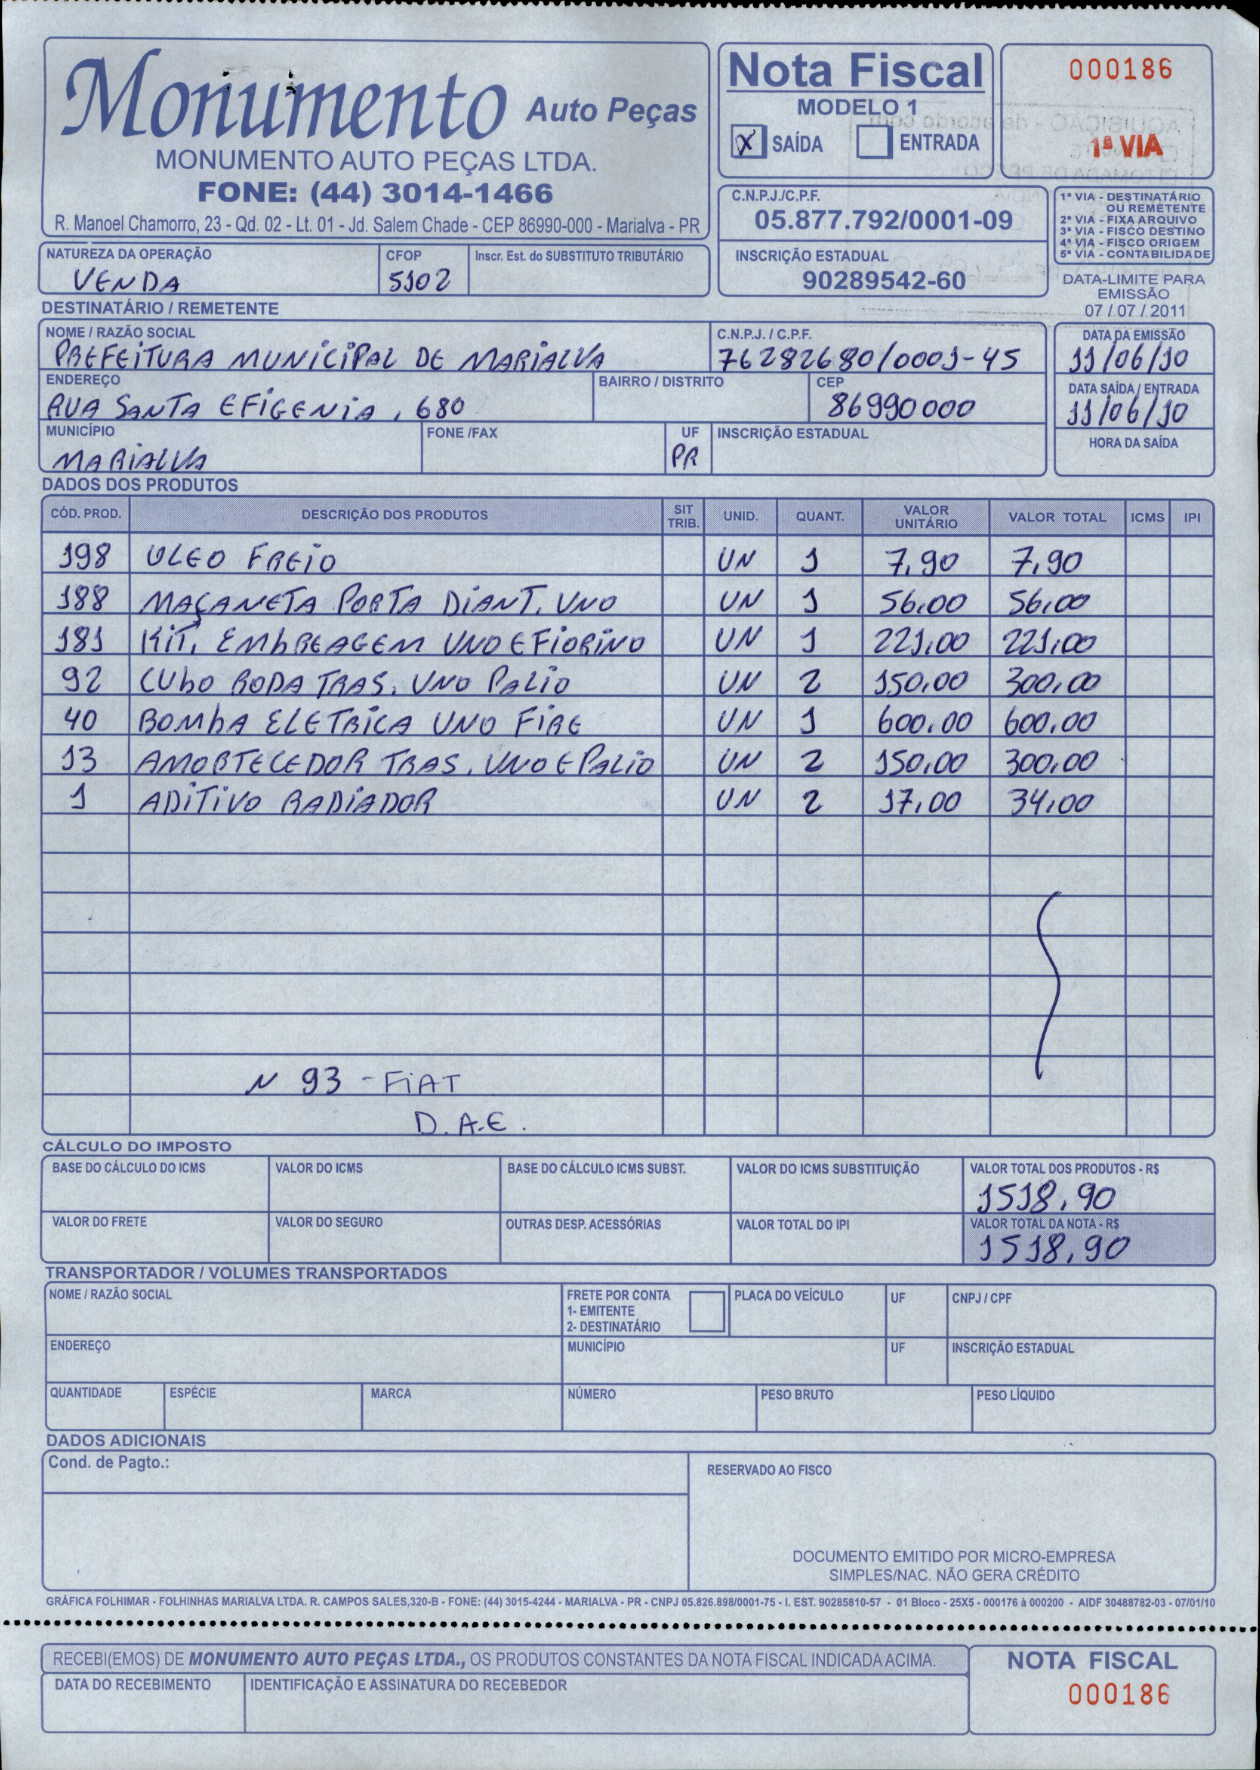 Monumento Auto Peças
MONUMENTO AUTO PEÇAS LTDA.
FONE: (44) 3014-1466
R. Manoel Chamorro, 23 - Qd. 02 - Lt. 01 - Jd. Salem Chade - CEP 86990-000 - Marialva - PR
Nota Fiscal
MODELO 1
X SAÍDA ENTRADA
000186
1ª VIA
C.N.P.J./C.P.F.
05.877.792/0001-09
INSCRIÇÃO ESTADUAL
90289542-60
1ª VIA - DESTINATÁRIO
OU REMETENTE
2ª VIA - FIXA ARQUIVO
3ª VIA - FISCO DESTINO
4ª VIA - FISCO ORIGEM
5ª VIA - CONTABILIDADE
DATA-LIMITE PARA
EMISSÃO
07 / 07 / 2011
NATUREZA DA OPERAÇÃO CFOP Inscr. Est. do SUBSTITUTO TRIBUTÁRIO
VENDA 5102
DESTINATÁRIO / REMETENTE
NOME / RAZÃO SOCIAL C.N.P.J. / C.P.F. DATA DA EMISSÃO
PREFEITURA MUNICIPAL DE MARIALVA 76282680/0001-45 11/06/10
ENDEREÇO BAIRRO / DISTRITO CEP DATA SAÍDA / ENTRADA
RUA SANTA EFIGENIA, 680 86990000 11/06/10
MUNICÍPIO FONE /FAX UF INSCRIÇÃO ESTADUAL HORA DA SAÍDA
MARIALVA PR
DADOS DOS PRODUTOS
CÓD. PROD. DESCRIÇÃO DOS PRODUTOS SIT TRIB. UNID. QUANT. VALOR UNITÁRIO VALOR TOTAL ICMS IPI
198 OLEO FREIO UN 1 7,90 7,90
188 MAÇANETA PORTA DIANT. UNO UN 1 56,00 56,00
181 KIT. EMBREAGEM UNO E FIORINO UN 1 221,00 221,00
92 CUBO RODA TRAS. UNO PALIO UN 2 150,00 300,00
40 BOMBA ELETRICA UNO FIRE UN 1 600,00 600,00
13 AMORTECEDOR TRAS. UNO E PALIO UN 2 150,00 300,00
1 ADITIVO RADIADOR UN 2 17,00 34,00
N 93 - FIAT
D.A.E.
CÁLCULO DO IMPOSTO
BASE DO CÁLCULO DO ICMS VALOR DO ICMS BASE DO CÁLCULO ICMS SUBST. VALOR DO ICMS SUBSTITUIÇÃO VALOR TOTAL DOS PRODUTOS - R$
1518,90
VALOR DO FRETE VALOR DO SEGURO OUTRAS DESP. ACESSÓRIAS VALOR TOTAL DO IPI VALOR TOTAL DA NOTA - R$
1518,90
TRANSPORTADOR / VOLUMES TRANSPORTADOS
NOME / RAZÃO SOCIAL FRETE POR CONTA PLACA DO VEÍCULO UF CNPJ / CPF
1- EMITENTE
2- DESTINATÁRIO
ENDEREÇO MUNICÍPIO UF INSCRIÇÃO ESTADUAL
QUANTIDADE ESPÉCIE MARCA NÚMERO PESO BRUTO PESO LÍQUIDO
DADOS ADICIONAIS
Cond. de Pagto.:
RESERVADO AO FISCO
DOCUMENTO EMITIDO POR MICRO-EMPRESA
SIMPLES/NAC. NÃO GERA CRÉDITO
GRÁFICA FOLHIMAR - FOLHINHAS MARIALVA LTDA. R. CAMPOS SALES,320-B - FONE: (44) 3015-4244 - MARIALVA - PR - CNPJ 05.826.898/0001-75 - I. EST. 90285810-57 - 01 Bloco - 25X5 - 000176 à 000200 - AIDF 30488782-03 - 07/01/10
RECEBI(EMOS) DE MONUMENTO AUTO PEÇAS LTDA., OS PRODUTOS CONSTANTES DA NOTA FISCAL INDICADA ACIMA.
DATA DO RECEBIMENTO IDENTIFICAÇÃO E ASSINATURA DO RECEBEDOR
NOTA FISCAL
000186